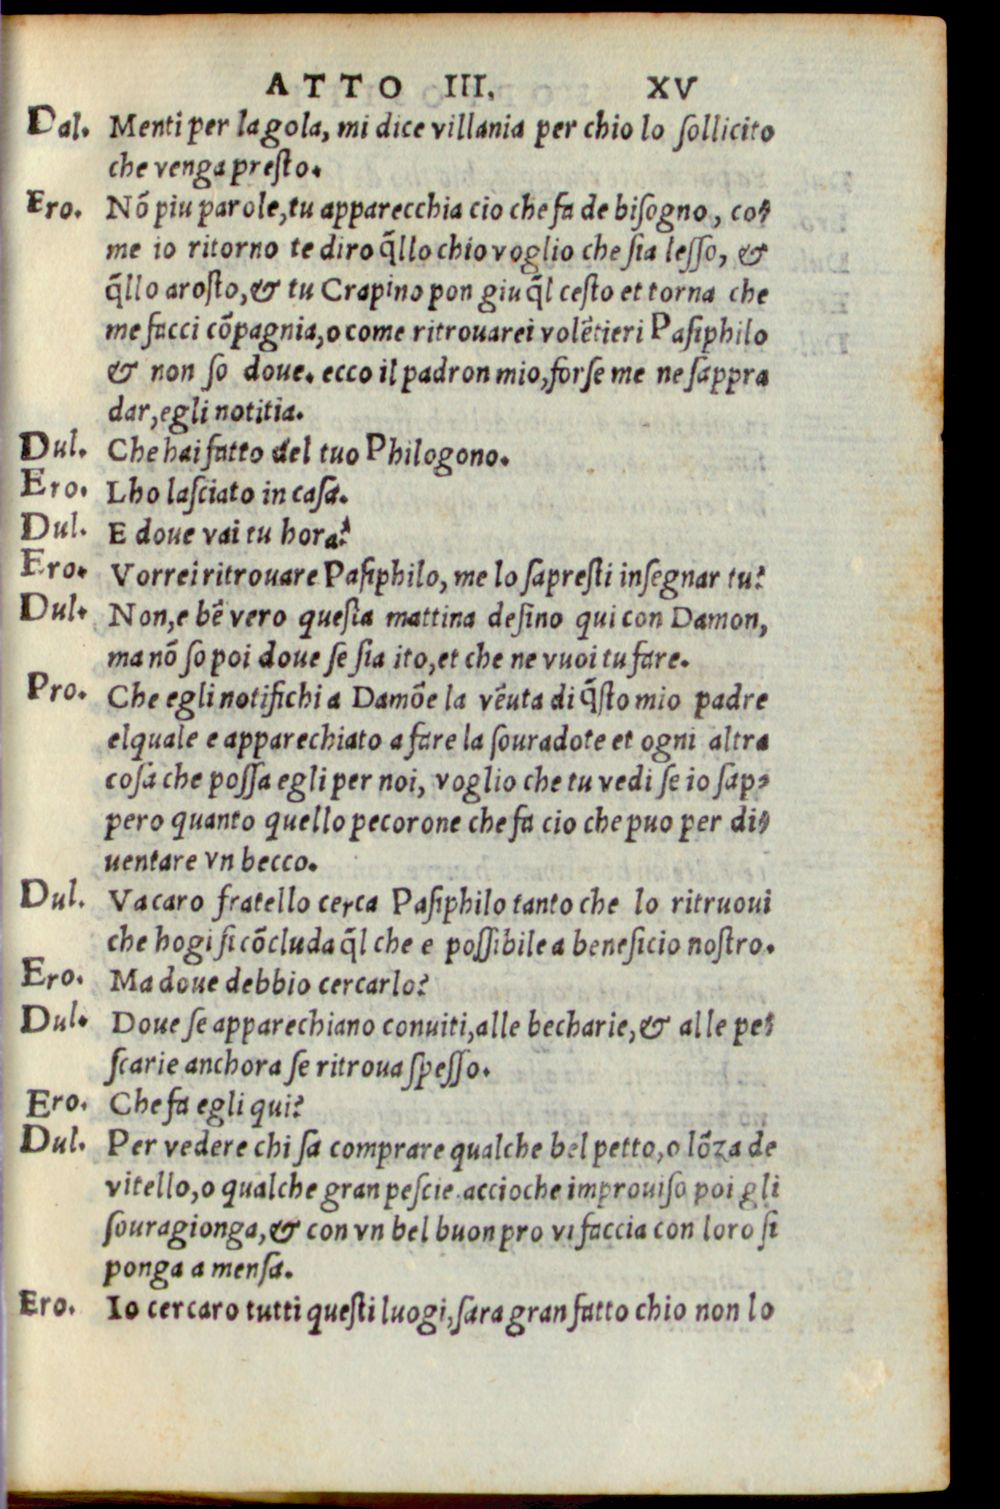 ATTO III. XV
Dal. Menti per la gola, mi dice villania per chio lo ſollicito
che venga preſto.
Ero. Nõ piu parole, tu apparecchia cio che fa de biſogno, co-
me io ritorno te diro q̃llo chio voglio che ſia leſſo, &
q̃llo aroſto, & tu Crapino pon giu q̃l ceſto et torna che
me facci cõpagnia, o come ritrouarei volẽtieri Paſiphilo
& non ſo doue. ecco il padron mio, forſe me ne ſappra
dar, egli notitia.
Dul. Che hai fatto del tuo Philogono.
Ero. Lho laſciato in caſa.
Dul. E doue vai tu hora?
Ero. Vorrei ritrouare Paſiphilo, me lo ſapreſti inſegnar tu?
Dul. Non, e bẽ vero queſta mattina deſino qui con Damon,
ma nõ ſo poi doue ſe ſia ito, et che ne vuoi tu fare.
Pro. Che egli notifichi a Damõe la vẽuta di q̃ſto mio padre
elquale e apparechiato a fare la ſouradote et ogni altra
coſa che poſſa egli per noi, voglio che tu vedi ſe io ſap-
pero quanto quello pecorone che fa cio che puo per di-
uentare vn becco.
Dul. Va caro fratello cerca Paſiphilo tanto che lo ritruoui
che hogi ſi cõcluda q̃l che e poſſibile a beneficio noſtro.
Ero. Ma doue debbio cercarlo?
Dul. Doue ſe apparechiano conuiti, alle becharie, & alle pe-
ſcarie anchora ſe ritroua ſpeſſo.
Ero. Che fa egli qui?
Dul. Per vedere chi ſa comprare qualche bel petto, o lõza de
vitello, o qualche gran peſcie. accioche improuiſo poi gli
ſouragionga, & con vn bel buon pro vi faccia con loro ſi
ponga a menſa.
Ero. Io cercaro tutti queſti luogi, ſara gran fatto chio non lo